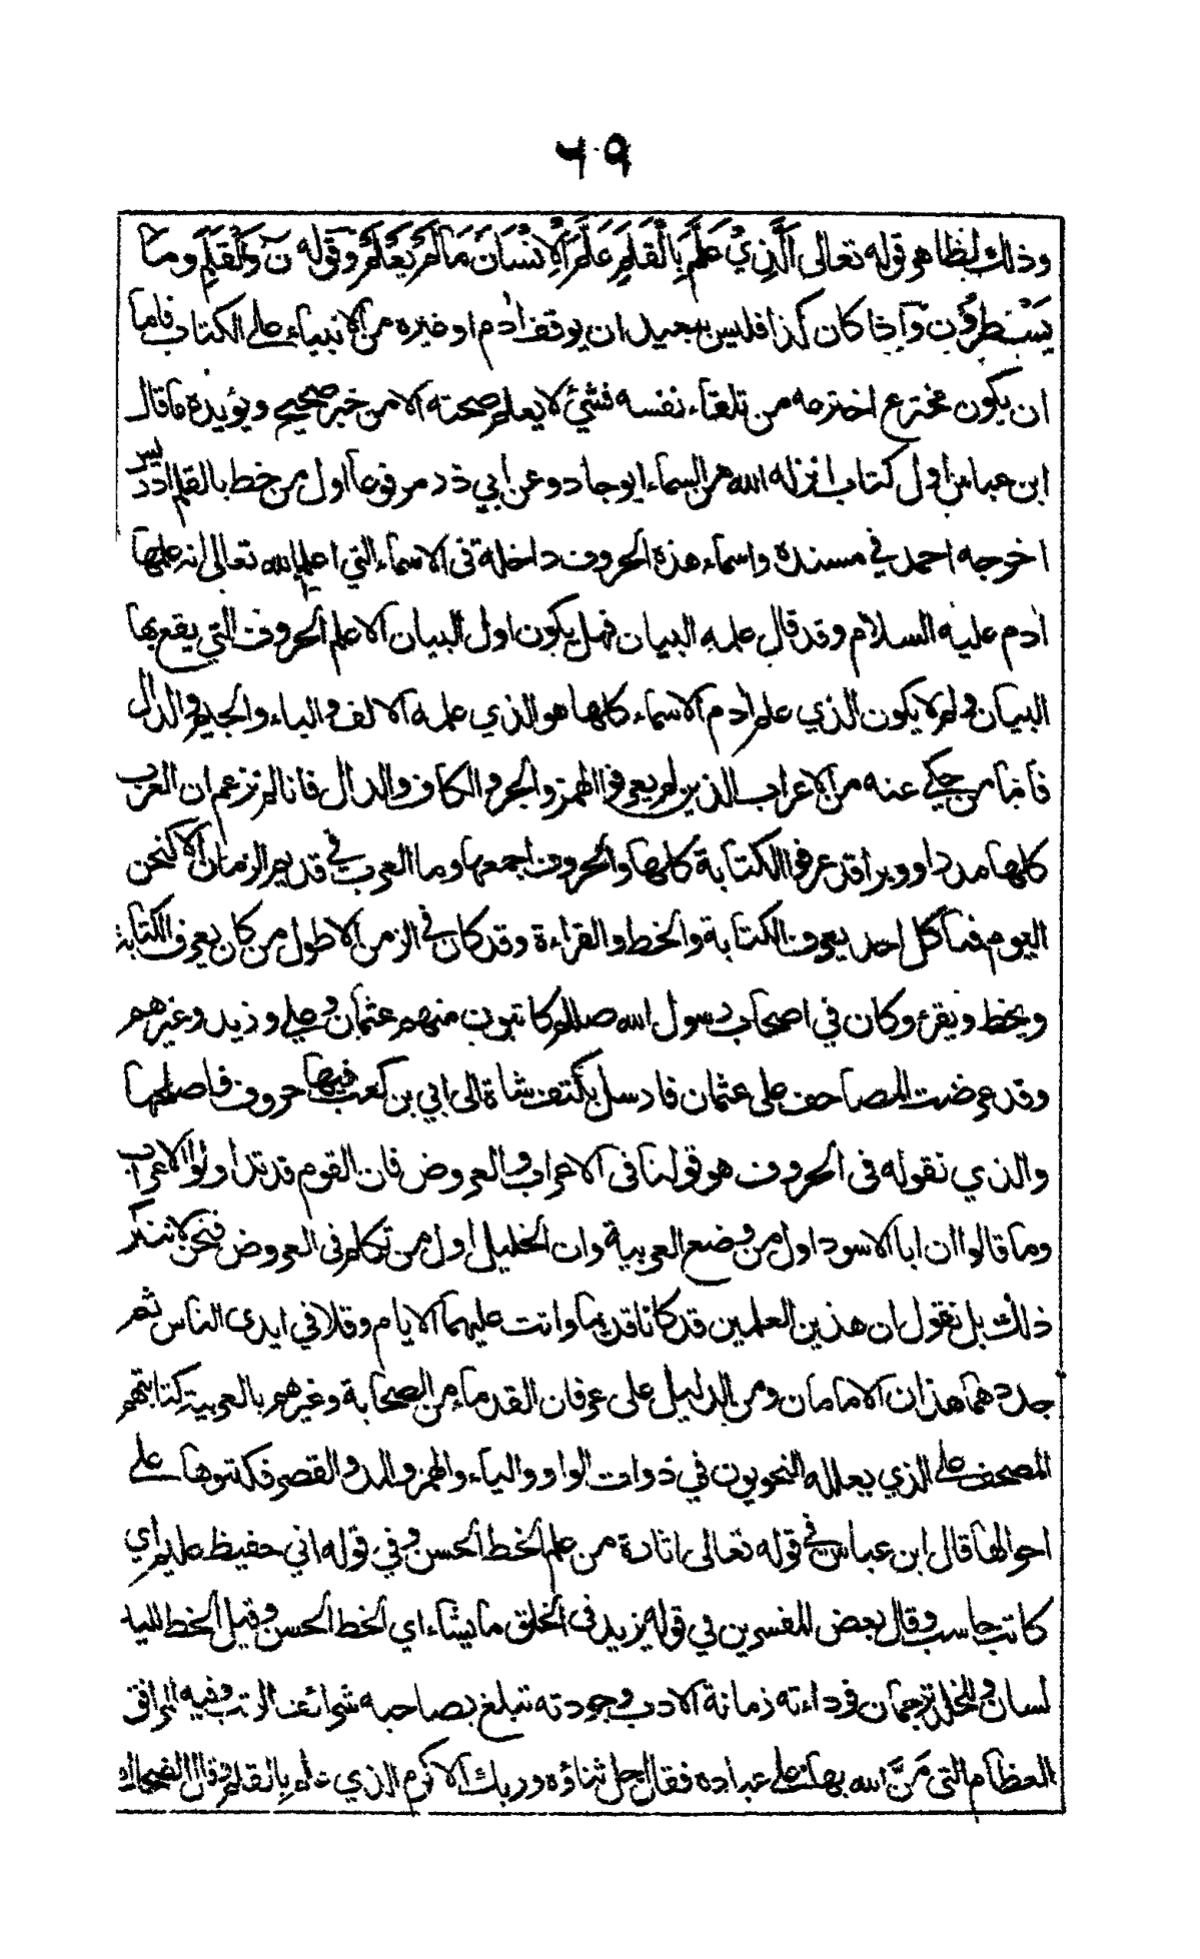 ٦٩
وذلك لظاهر قوله تعالى اَلَّذِيْ عَلَّمَ بِالْقَلَمِ عَلَّمَ الْاِنْسَانَ مَا لَمْ يَعْلَمْ وقوله نٓ وَالْقَلَمِ وما
يَسْطُرُوْنَ وآذا كان كذا فليس ببعيد ان يوقف اٰدم او غيره من الانبياء على الكتاب فاما
ان يكون مخترع اخترعه من تلقاء نفسه فشئ لا يعلم صحته الا من خبر صحيح ويؤيده ما قال
ابن عباس اول كتاب انزله الله من السماء ابو جاد وعن ابي ذر مرفوعا اول من خط بالقلم ادريس
اخرجه احمد في مسنده واسماء هذه الحروف داخلة في الاسماء التي اعلم الله تعالى انه علمها
اٰدم عليه السلام وقد قال علمه البيان فهل يكون اول البيان الا علم الحروف التي يقع بها
البيان ولم لا يكون الذي علم اٰدم الاسماء كلها هو الذي علمه الالف والباء والجيم والدال
فاما من حكي عنه من الاعراب الذين لم يعرفوا الهمز والجر والكاف والدال فانا لم نزعم ان العرب
كلها مدرا ووبرا قد عرفوا الكتابة كلها والحروف اجمعها وما العرب في قديم الزمان الا كنحن
اليوم فما كل احد يعرف الكتابة والخط والقراءة وقد كان في الزمن الاطول من كان يعرف الكتابة
ويخط ويقرء وكان في اصحاب رسول الله صللم كاتبون منهم عثمان وعلي وزيد وغيرهم
وقد عرضت المصاحف على عثمان فارسل بكتف شاة الى ابي بن كعب فيها حروف فاصلحها
والذي نقوله في الحروف هو قولنا في الاعراب والعروض فان القوم قد تداولوا الاعراب
وما قالوا ان ابا الاسود اول من وضع العربية وان الخليل اول من تكلم في العروض فنحن لا ننكر
ذلك بل نقول ان هذين العلمين قد كانا قديما واتت عليهما الايام وقلا في ايدى الناس ثم
جددهما هذان الامامان ومن الدليل على عرفان القدماء من الصحابة وغيرهم بالعربية كتابتهم
المصحف على الذي يعلله النحويون في ذوات الواو والياء والهمز والمد والقصر فكتبوها على
احوالها قال ابن عباس في قوله تعالى اثارة من علم الخط الحسن وفي قوله اني حفيظ عليم اي
كاتب حاسب وقال بعض المفسرين في قوله يزيد في الخلق ما يشاء اي الخط الحسن وقيل الخط لليد
لسان وللخلد ترجمان فرداءته زمانة الادب وجودته تبلغ بصاحبه شرائف الرتب وفيه المرافق
العظام التى مَنَّ الله بها على عباده فقال جل ثناؤه وربك الاكرم الذي علم بالقلم وقال الضحاك